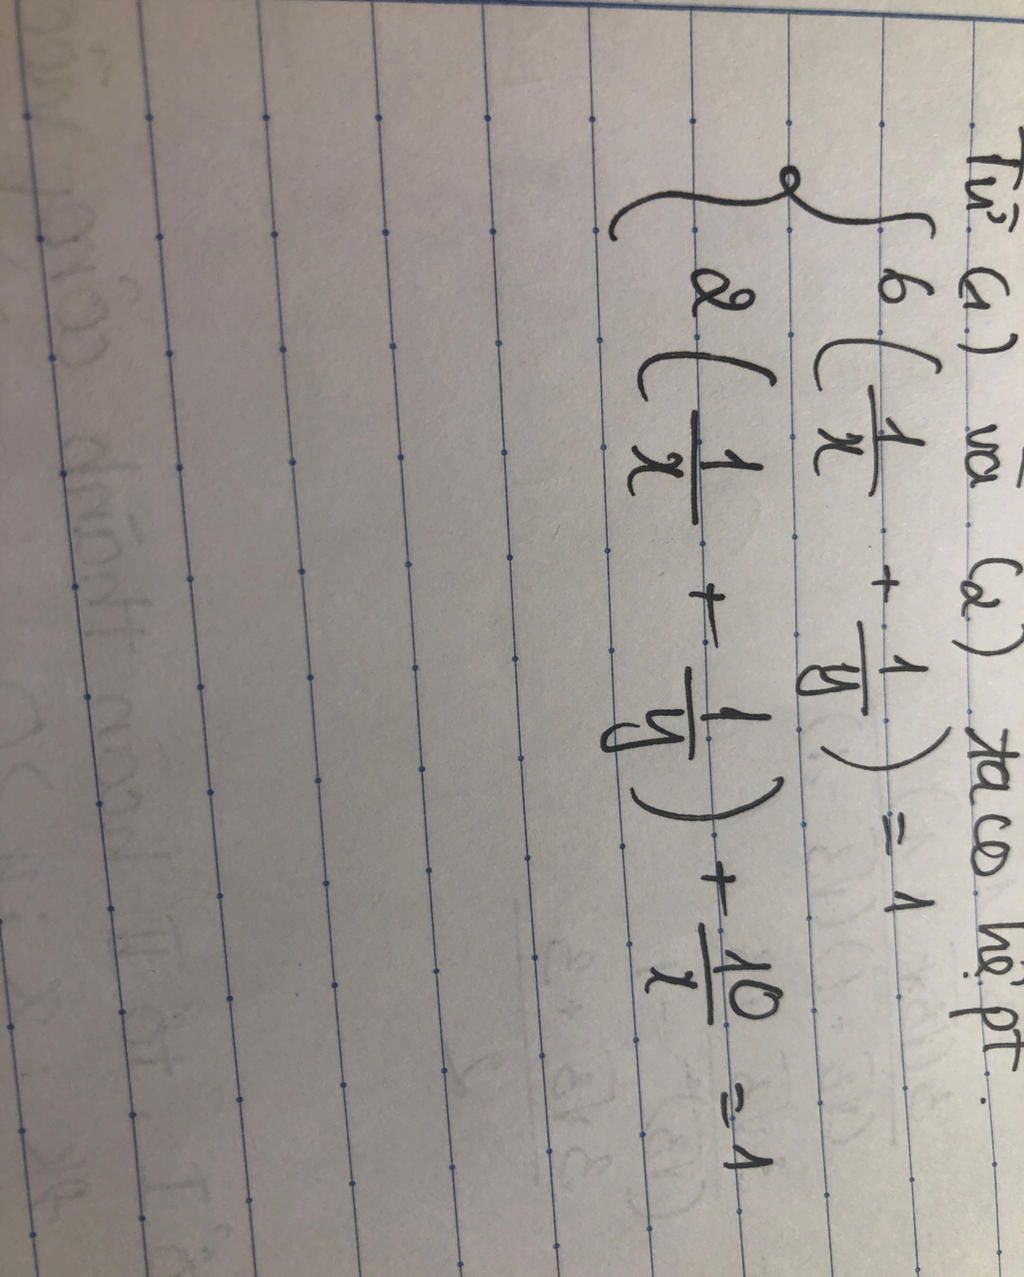 Từ (1) và (2) ta có hệ pt.
6(1/x + 1/y) = 1
2(1/x + 1/y) + 10/x = 1